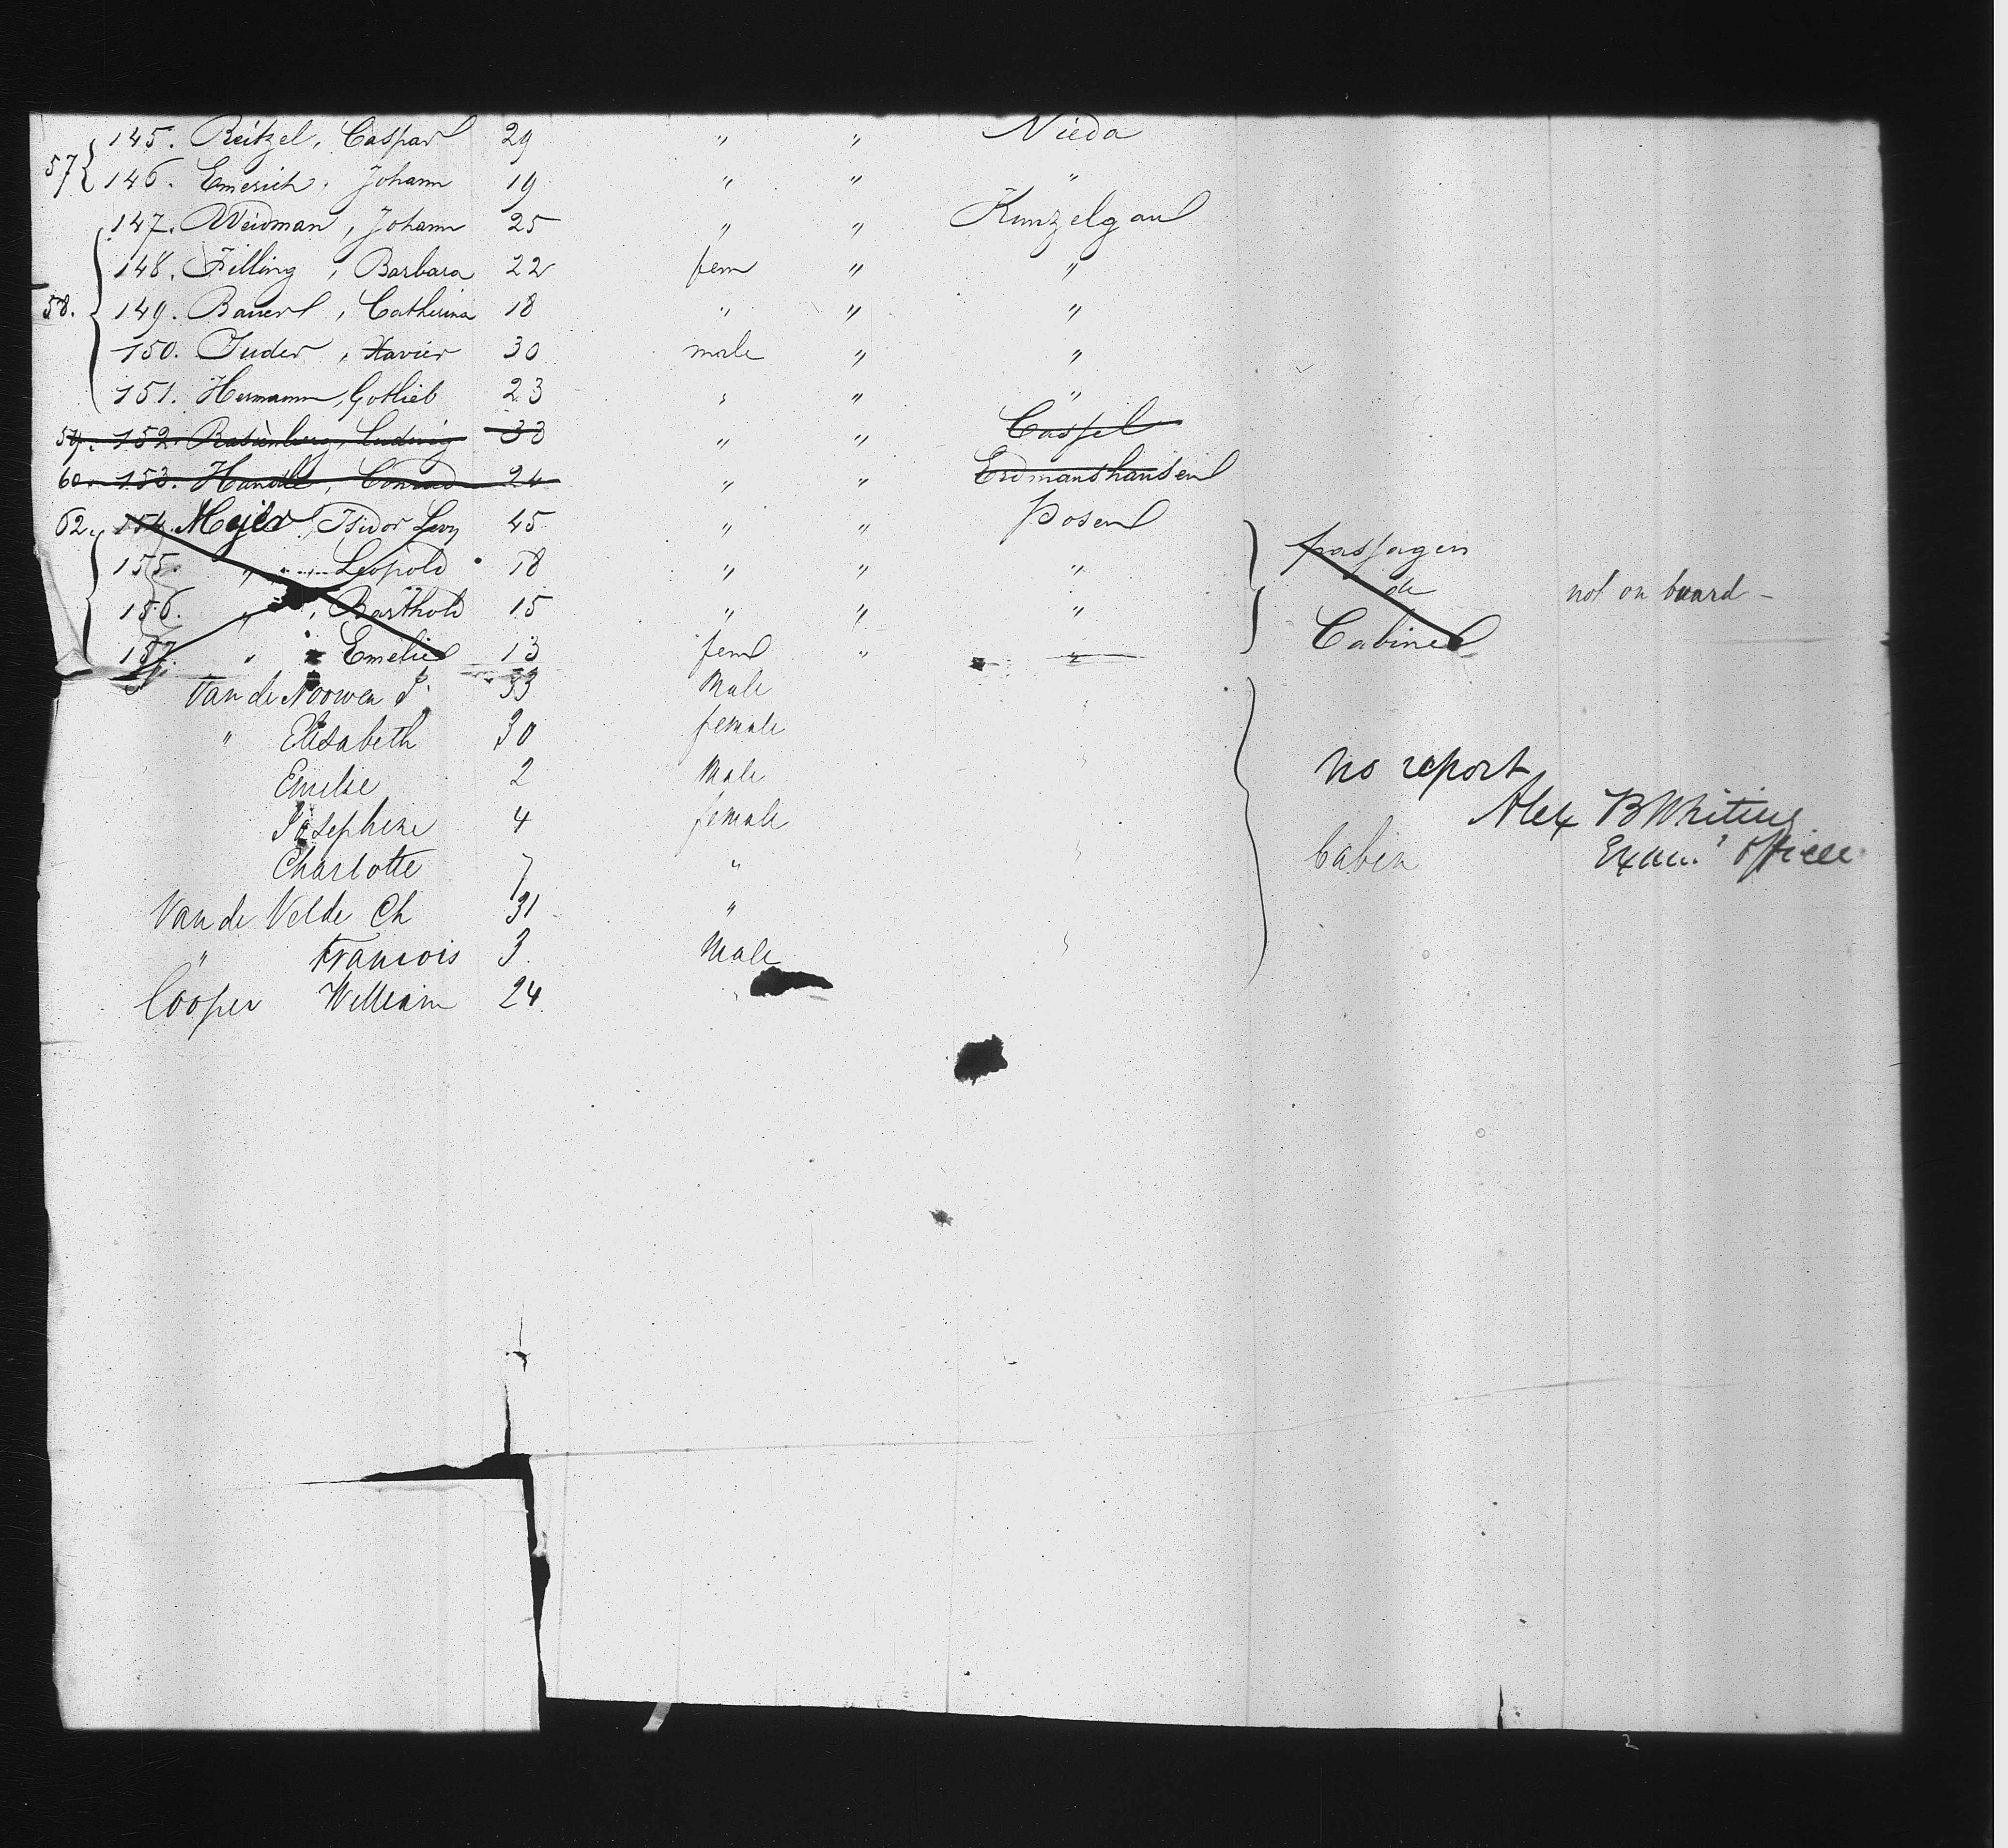 145. Reitzel, Caspar 29 " " Nieda
57 { 146. Emerich, Johann 19 " " "
147. Weidman, Johann 25 " " Kunzelgau
148. Filling, Barbara 22 fem " "
58. 149. Bauer, Catherina 18 " " "
150. Suder, Xavier 30 male " "
151. Hermann, Gotlieb 23 " " "
59. 152. Rasenberg, Ludwig 33 " " Cassel
60. 153. Handle, Conrad 24 " " Erdmanshausen
62. 154. Mejer, Isidor Levy 45 " " Posen
155. " Leopold 18 " " " passagers
156. " , Barthold 15 " " " de not on board -
157. " " Emelie 13 fem " " Cabine
Van de P. 33 Male
" Elisabeth 30 female
Emelie 2 Male no report
Josephine 4 female Alex B Whiting
Charlotte 7 " Cabin Exam. Officer
Van de Velde Ch 31 "
" Francois 3. Male
Cooper William 24.
2